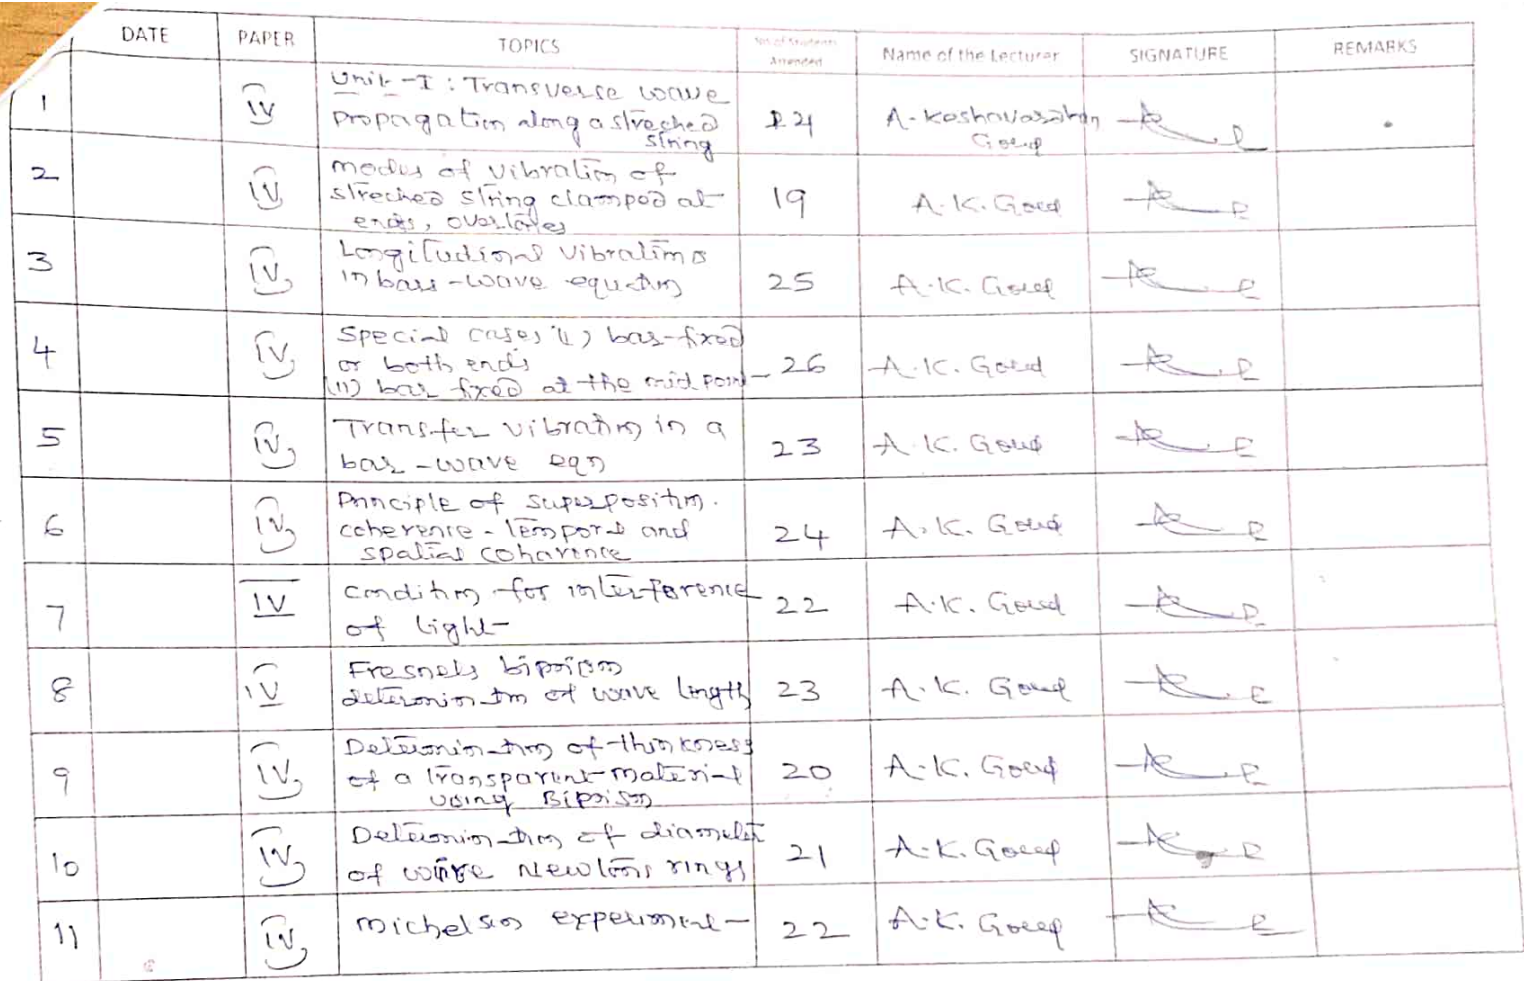 DATE PAPER TOPICS No of Students Attended Name of the Lecturer SIGNATURE REMARKS
1 IV Unit-I : Transverse wave
propagation along a streched
string
24 A. Goud
2 IV modes of vibration of
streched string clamped at
ends, overtones
19 A.K. Goud
3 IV Longitudional vibrations
in bars - wave equation
25 A.K. Goud
4 IV Special cases (i) bar-fixed
or both ends
(ii) bar fixed at the mid point
26 A.K. Goud
5 IV Transfer vibration in a
bar - wave eqn
23 A.K. Goud
6 IV Principle of superposition.
coherence - temporal and
spatial coharence
24 A.K. Goud
7 IV condition for interference
of light
22 A.K. Goud
8 IV Fresnels biprism
determination of wave length
23 A.K. Goud
9 IV Determination of thinkness
of a transparent material
using Biprism
20 A.K. Goud
10 IV Determination of diameter
of wire Newtons rings
21 A.K. Goud
11 IV michelson experiment
22 A.K. Goud